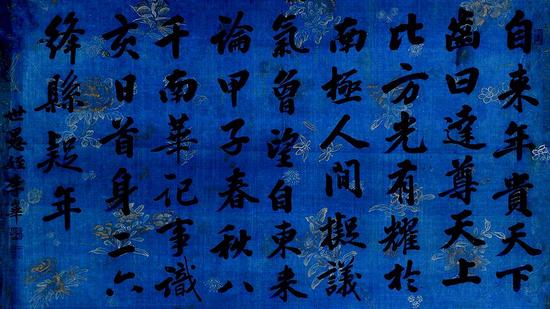 自来年貴天下
齒曰達尊天上
比方光有耀於
南極人間擬議
氣曾望自東来
論甲子春秋八
千南華記事識
亥日首身二六
絳縣疑年